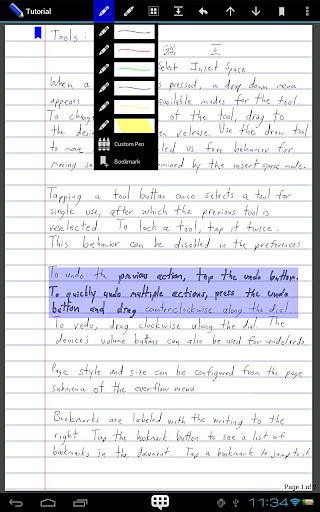 Tutorial
Tools:
Select Insert Space
When a is pressed, a drop down menu
appears available modes for the tool.
To change of the tool, drag to
the desi en release. Use the draw tool
to move led vs free behavior for
moving se mized by the insert space mode.
Custom Pen
Bookmark
Tapping a tool button once selects a tool for
single use, after which the previous tool is
reselected. To lock a tool, tap it twice.
This behavior can be disabled in the preferences
To undo the previous action, tap the undo button.
To quickly undo multiple actions, press the undo
button and drag counterclockwise along the dial
To redo, drag clockwise along the dial. The
device's volume buttons can also be used for undo/redo.
Page style and size can be configured from the page
submenu of the overflow menu
Bookmarks are labeled with the writing to the
right. Tap the bookmark button to see a list of
bookmarks in the document. Tap a bookmark to jump to it
Page 1 of
11:34